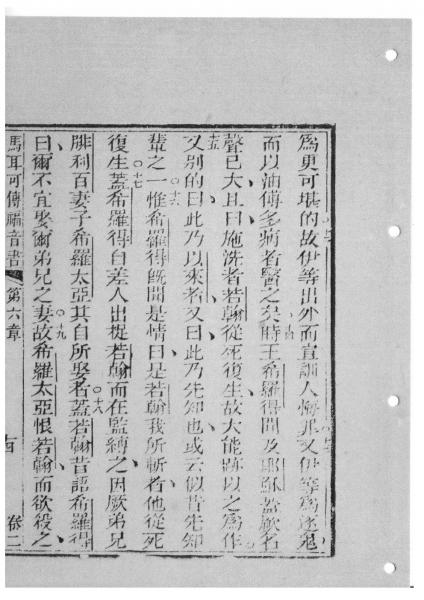 為更可堪的○十二故伊等出外而宣訓人悔罪○十三又伊等為逐鬼
而以油傅多病者醫之矣○十四時王希羅得聞及耶穌蓋厥名
聲已大且曰施洗者若翰從死復生故大能跡以之為作
○十五又別的曰此乃以來者又曰此乃先知也或云似昔先知
輩之一○十六惟希羅得既聞是情曰是若翰我所斬者他從死
復生○十七蓋希羅得自差人出捉若翰而在監縛之因厥弟兄
腓利百妻子希羅太亞其自所娶者○十八蓋若翰昔語希羅得
曰爾不宜娶爾弟兄之妻○十九故希羅太亞恨若翰而欲殺之
馬耳可傳福音書 第六章 卷二